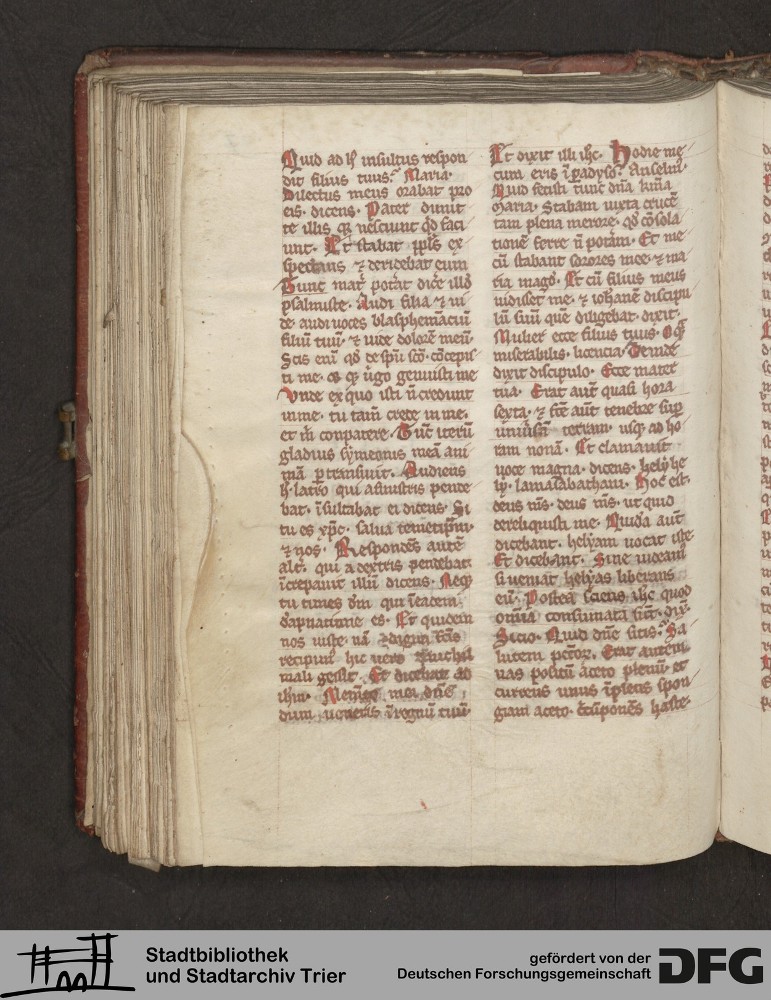 Quid ad h̄ insultus respon
dit filius tuus? Maria.
Dilectus meus orabat pro
eis. dicens. Pater dimit
te illis qꝫ nesciunt qd faci
unt. Et stabat ppls ex
spectans ⁊ deridebat eum
Tunc mar potat dice illd
psalmiste. Audi filia ⁊ ui
de. audi uoces blasphemaciū
filiū tuū. ⁊ uide dolorē meū.
Scis enī qd de spū sco. cōcepis
ti me. et qꝫ ugo genuisti me
Unde ex quo isti n̄ credunt
in me. tu tam̄ crede in me.
et m̄ conpatere. Tūc iterū
gladius symeonis meā ani
mā ptransiuit. Audiens
h̄. latro qui a sinistris pende
bat. īsultabat ei dicens. Si
tu es xp̄c. salua temetipm̄.
⁊ nos. Respondēs autē
alt. qui a dextris pendebat
īcrepauit illū dicens. Neqꝫ
tu times dm̄ qui ī eadem
dāpnatione es. Et quidem
nos iuste. nā ⁊ digna fcīs
recipim hic uero nichil
mali gessit. Et dicebat ad
ihm. Memēto mei dn̄e
dum ueneris ī regnū tuū.
Et dixit illi ihc. Hodie me
cum eris ī padyso. Anselm.
Quid fecisti tunc dn̄a
Maria. Stabam iuxta crucē
tam plena merore. qd cōsola
tionē ferre n̄ potam. Et me
cū stabant sorores mee ⁊ ma
ria magd. Et cū filius meus
uidisset me. ⁊ iohanē discipu
lū suū quē diligebat. dixit.
Mulier ecce filius tuus. O qꝫ
miserabilis. licencia. Deinde
dixit discipulo. Ecce mater
tua. Erat aut̄ quasi hora
sexta. ⁊ fcē aut̄ tenebre sup
uniūsā terram. usqꝫ ad ho
ram nonā. Et clamauit
uoce magna. dicens. hely he
ly. lamasabathani. Hoc est.
deus m̄s. deus m̄s. ut quid
dereliquisti me. Quidā aut̄
dicebant. helyam uocat iste
Et dicebant. Sine uideam
si ueniat helyas liberans
eū. Postea sciens ihc quod
omīa consumata sūt. dix.
Sicio. Quid dn̄e sitis? Sa
lutem pctōꝝ. Erat autem
uas positū aceto plenū. et
currens unus īplecis spon
giam aceto. ⁊ cūponēs haste
Stadtbibliothek
und Stadtarchiv Trier
gefördert von der
Deutschen Forschungsgemeinschaft
DFG